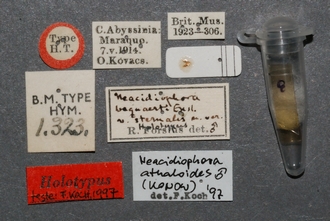 Type
H.T.
C. Abyssinia:
Maraquo.
7.v.1914.
O. Kovacs.
Brit. Mus.
1923-306.
B.M. TYPE
HYM.
1.323.
Neacidiophora
bequaerti
v. sternalis n. var.
Holotypus
R. Forsius det. ♂
Holotypus
teste: F. Koch 1997
Neacidiophora
athaloides ♂
(KONOW)
'97
det. F. Koch
♀